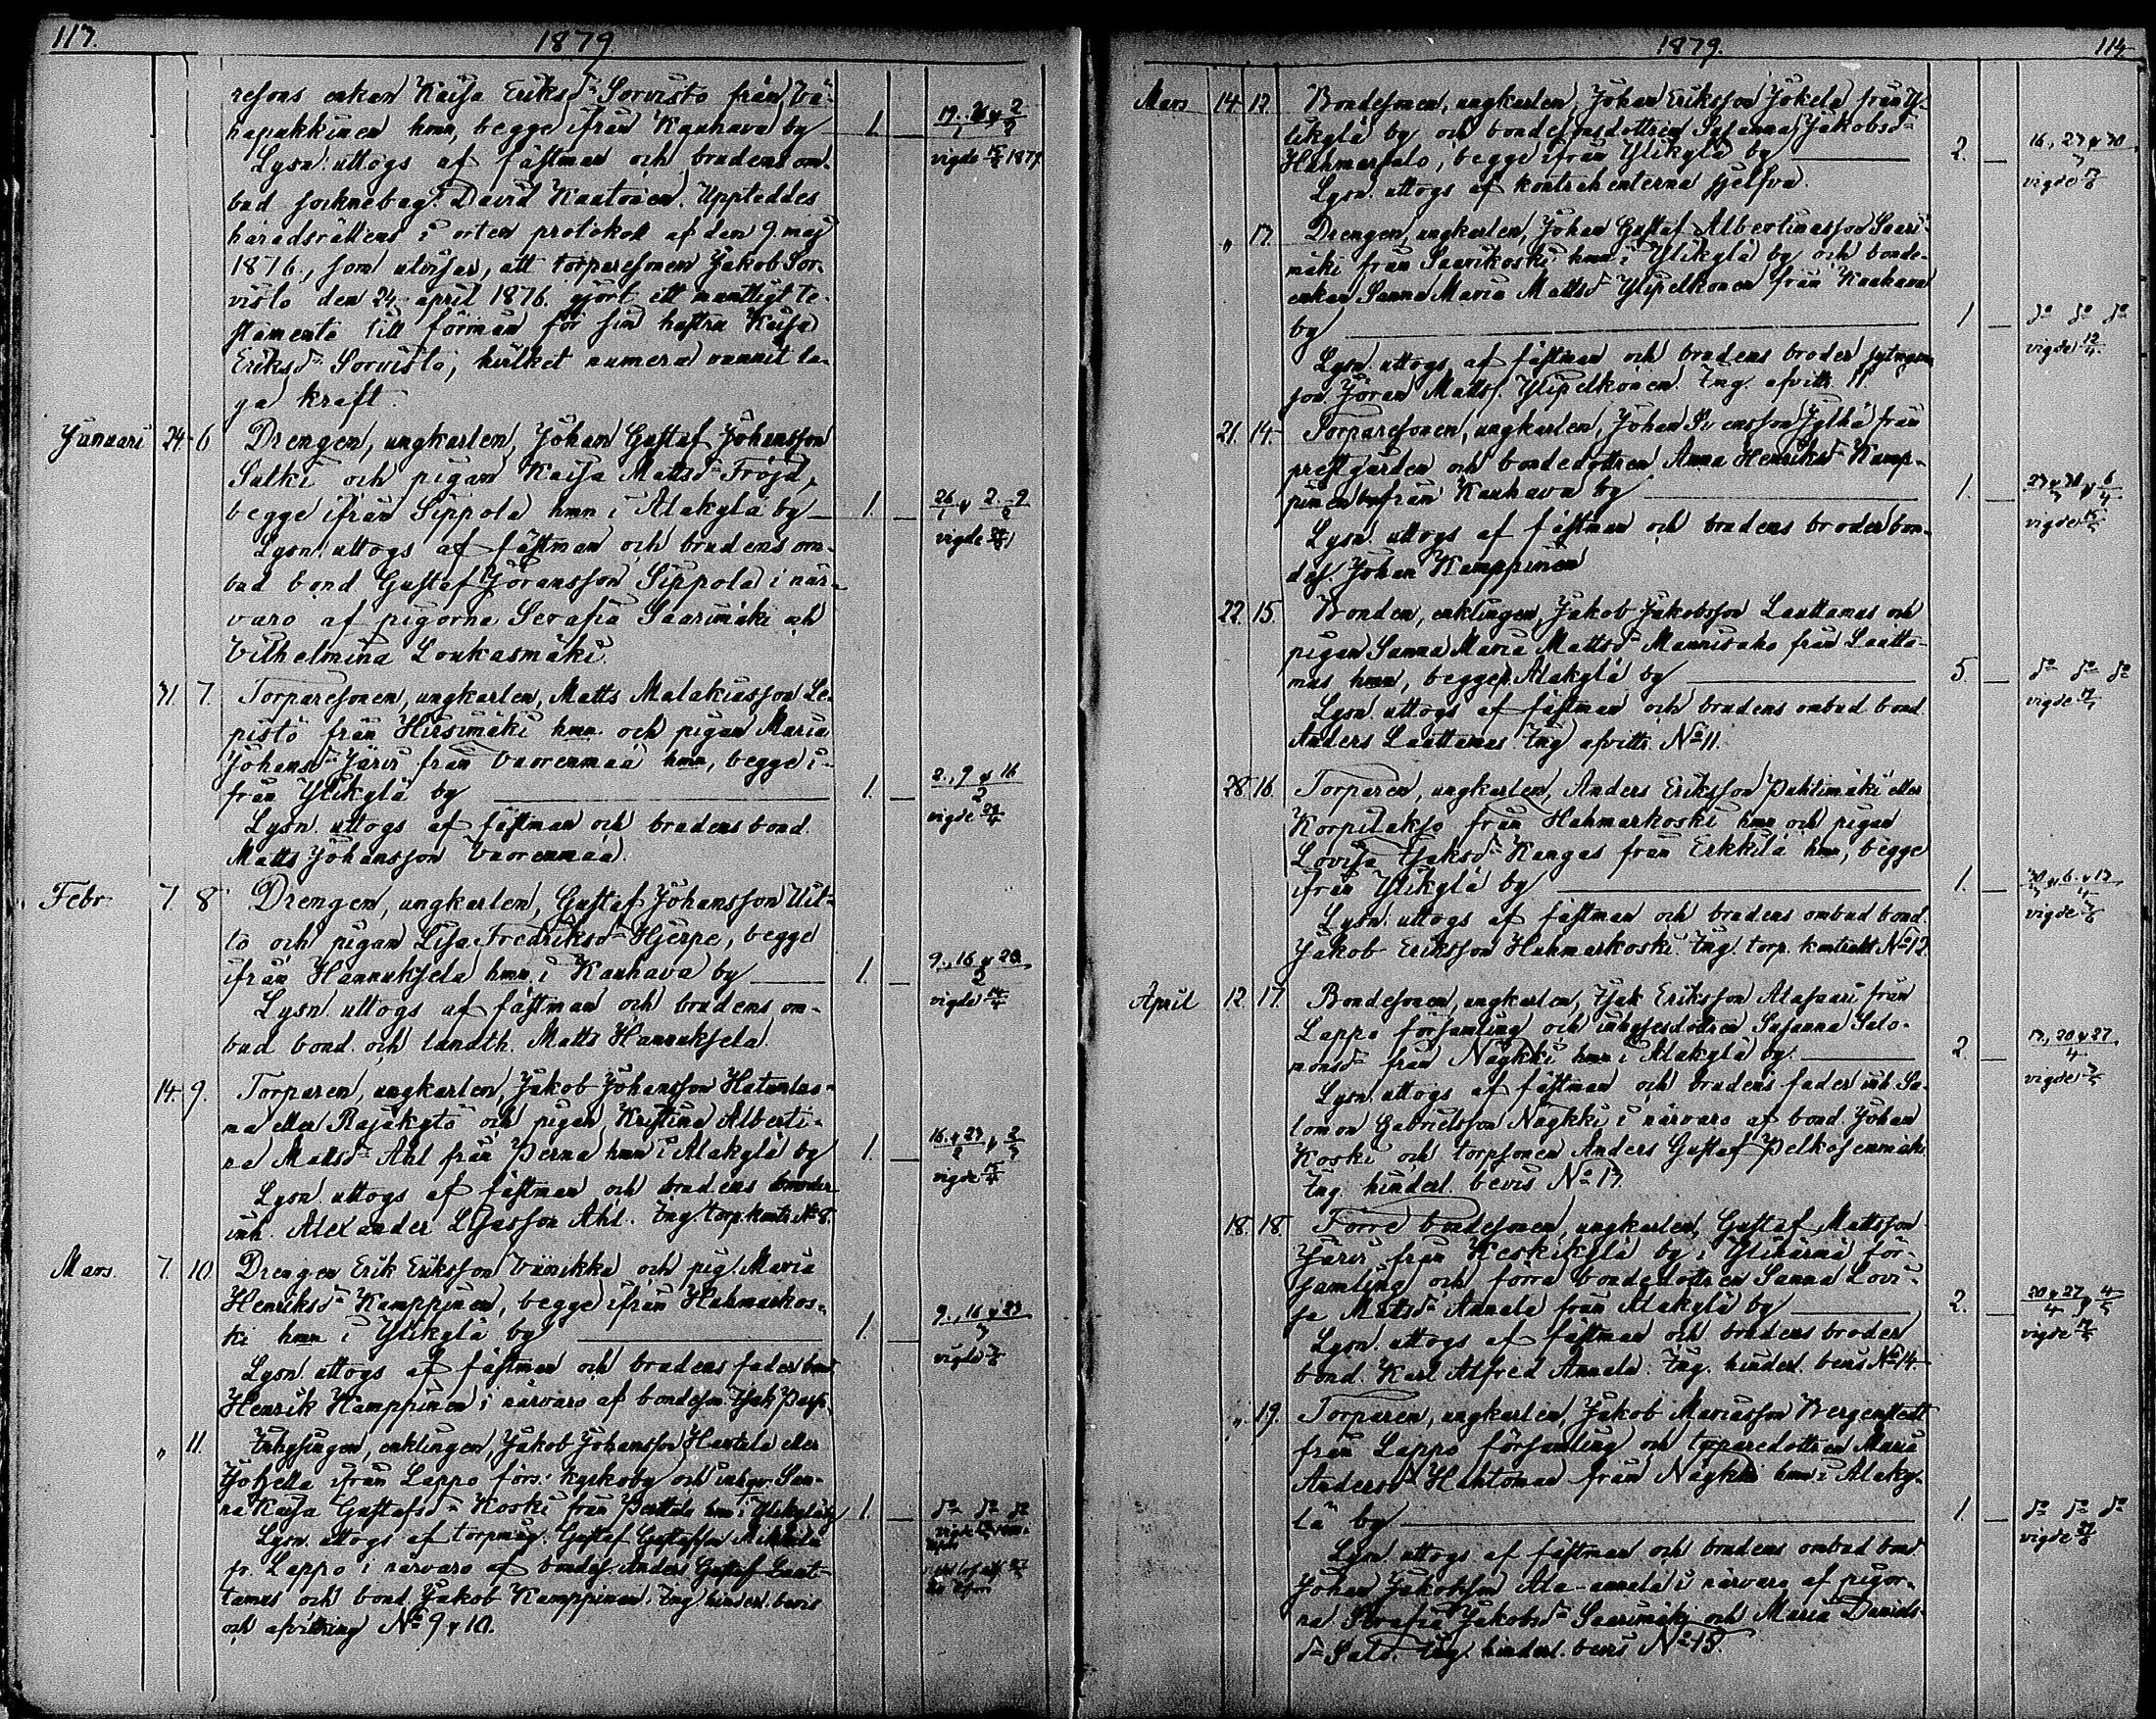 113.
1879
resons enkan Kaisa Eriksdr Sorvisto från Vä-
häpakkinen hmn, begge ifrån Kauhava by — 1. — 19. 26 & 2/2
vigde 1879
Lysn. uttogs af fästman och brudens om-
bud socknebag. David Kaatonen. Uppteddes
häradsrättens i orten protokoll af den 9 maj
1876, som utvisar, att torparesonen Jakob Sor-
visto den 24 april 1876 gjort ett muntligt te-
stamente till förmån för sin hustru Kaisa
Eriksdr Sorvisto, hvilket numera vunnit la-
ga kraft.
Januari 24. 6 Drengen, ungkarlen, Johan Gustaf Johansson
Salki och pigan Kaisa Mattsdr Fröjd,
begge ifrån Sippola hmn i Alakylä by — 1. — 26/1 & 2. 9/2
Lysn. uttogs af fästman och brudens om- vigde
bud bond Gustaf Göransson Sippola i när-
varo af pigorna Serafia Saarimäki och
Vilhelmina Loukasmäki.
31. 7. Torparesonen, ungkarlen, Matts Malakiasson Le-
pistö från Hirsimäki hmn och pigan Maria
Johansdr Järvi från Vuorenmaa hmn, begge i-
från Ylikylä by — 1. — 2., 9 & 16/2
Lysn. uttogs af fästman och brudens bond. vigde
Matts Johansson Vuorenmaa.
Febr. 7. 8 Drengen, ungkarlen, Gustaf Johansson Uit-
to och pigan Lisa Fredriksdr Hjerpe, begge
ifrån Hannuksela hmn i Kauhava by — 1. — 9., 16 & 23/2
Lysn. uttogs af fästman och brudens om- vigde
bud bond. och landth. Matts Hannuksela.
14. 9. Torparen, ungkarlen, Jakob Johansson
na eller Rajakytö och pigan Kristina Alberti-
na Mattsdr Ahl från Perna hmn i Alakylä by 1. — 16. & 23/2 & 2/3
Lysn. uttogs af fästman och brudens broder vigde
inh. Alexander Ahl. Ing. torp.kontr. No 8.
Mars. 7. 10. Drengen Erik Eriksson Viinikka och pig. Maria
Henriksdr Kamppinen, begge ifrån Hahmarkos-
ki hmn i Ylikylä by — 1. — 9., 16 & 23/3
Lysn. uttogs af fästman och brudens fader bond. vigde
Henrik Kamppinen i närvaro af bondeson Isak
„ 11. Inhysingen, enklingen, Jakob Johansson Hantala eller
ifrån Lappo förs. kyrkoby och San-
na Kaisa Gustafsdr Koski från hmn i Ylikylä by 1. — do do do
Lysn. uttogs af torpmåg. Gustaf Gustafsson Mikkola vigde
fr. Lappo i närvaro af bondes. Anders Gustaf Laut-
tamus och bond. Jakob Kamppinen. Ing. hinderl. bevis
och afvittring No 9 & 10.
1879.
114
Mars 14. 12. Bondesonen, ungkarlen, Johan Eriksson Jokela från Y-
likylä by och bondesonsdottren Susanna Jakobsdr
Hahmarsalo, begge ifrån Ylikylä by — 2. — 16., 23 & 30/3
Lysn. uttogs af kontrahenterna sjelfva. vigde
„ 13. Drengen, ungkarlen, Johan Gustaf Albertinasson Saari-
mäki från Saarikoski hmn i Ylikylä by och bonde-
enkan Sanna Maria Mattsdr Ylipelkonen från Kauhava
by — 1 — do do do
Lysn. uttogs af fästman och brudens broder vigde 12/4
son Jöran Matts. Ylipelkonen. Ing. afvittr. 11.
21. 14. Torparesonen, ungkarlen, Johan Svensson Jylhä från
prestgården och bondedottren Anna Henriksdr Kamp-
pinen från Kauhava by — 1. — 23 & 30/3 & 6/4
Lysn. uttogs af fästman och brudens broder bon- vigde
des. Johan Kamppinen
22. 15. Bonden, enklingen, Jakob Jakobsson Lauttamus och
pigan Sanna Maria Mattsdr Mannisaho från Lautta-
mus hmn, begge Alakylä by — 5 — do do do
Lysn. uttogs af fästman och brudens ombud bond. vigde
Anders Lauttamus. Ing afvittr. No 11.
28. 16. Torparen, ungkarlen, Anders Eriksson Puhtimäki eller
Korpilakso från Hahmarkoski hmn och pigan
Lovisa Isaksdr Kangas från Erkkilä hmn, begge
ifrån Ylikylä by — 1. — 30/3 & 6. & 13/4
Lysn. uttogs af fästman och brudens ombud bond. vigde
Jakob Eriksson Hahmarkoski. Ing. torp. kontrakt No 12.
April 12. 17. Bondesonen, ungkarlen, Isak Eriksson Alasaari från
Lappo församling och inhysesdottren Susanna Salo-
monsdr från Näykki hmn i Alakylä by. — 2. — 13., 20 & 27/4
Lysn. uttogs af fästman och brudens fader inh. Sa- vigde
lomon Gabrielsson Näykki i närvaro af bond. Johan
Koski och torpsonen Anders Gustaf Pelkosenmäki.
Ing. hinderl. bevis No 13.
18. 18. Förre bondesonen, ungkarlen, Gustaf Mattsson
Järvi från Keskikylä by i Ylihärmä för-
samling och förra bondedottren Sanna Lovi-
sa Mattsdr Annala från Alakylä by — 2. — 20 & 27/4 & 4/5
Lysn. uttogs af fästman och brudens broder vigde
bond. Karl Alfred Annala. Ing. hinderl. bevis No 14.
„ 19. Torparen, ungkarlen, Jakob Mariasson Bergenstedt
från Lappo församling och torparedottren Maria
Andersdr Huhtamaa från Näykki hmn i Alaky-
lä by — 1. — do do do
Lysn. uttogs af fästman och brudens ombud bond. vigde
Johan Jakobsson Ala-annala i närvaro af pigor-
na Serafia Jakobsdr Saarimäki och Maria Daniels-
dr Salo. Ing. hinderl. bevis No 15.